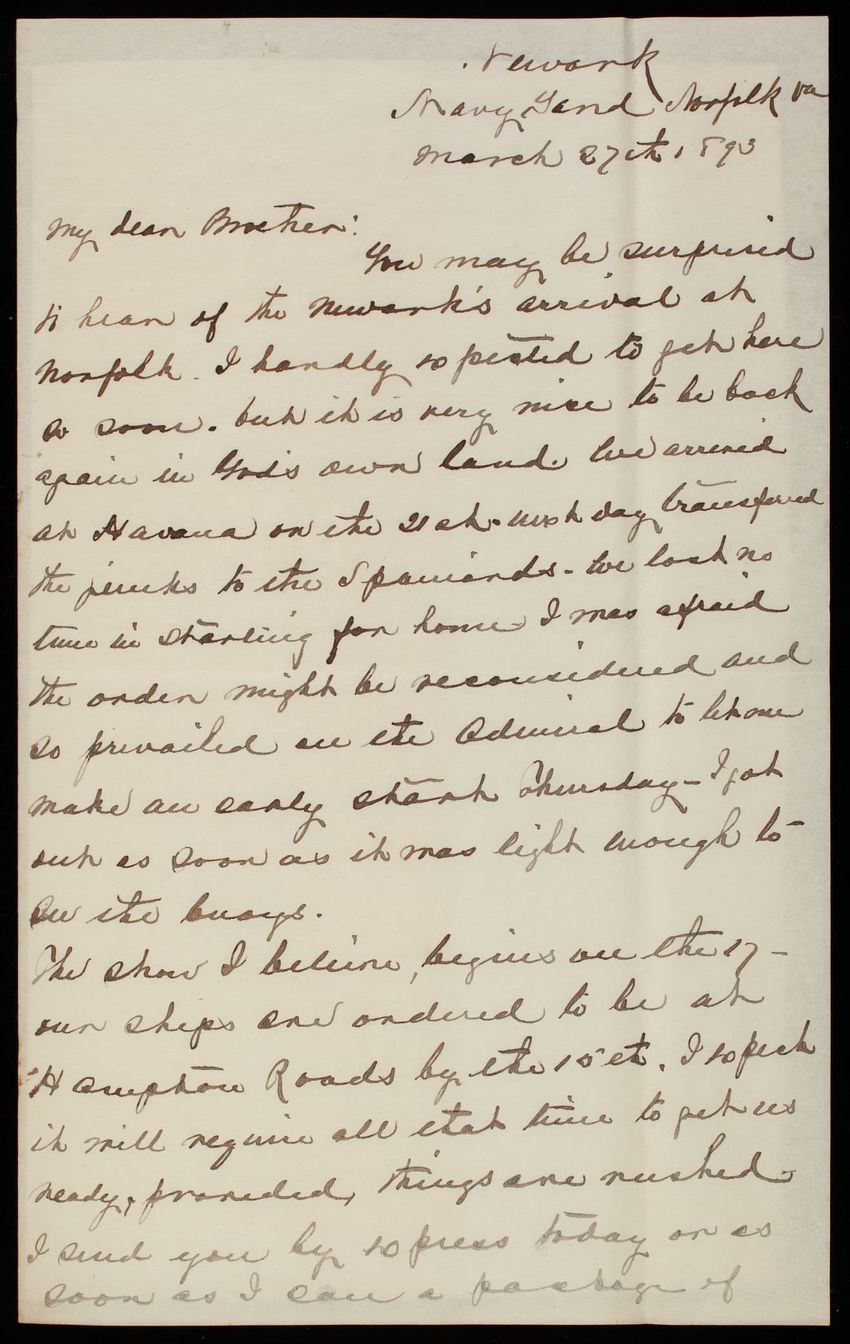 Newark
Navy Yard Norfolk Va
March 27th 1893
My dear Brother:
You may be surprised
to hear of the Newark's arrival at
Norfolk. I hardly expected to get here
so soon. but it is very nice to be back
again in God's own land. We arrived
at Havana on the 21st. next day transfered
the junks to the Spaniards - We lost no
time in starting for home. I was afraid
the order might be reconsidered and
so prevailed on the Admiral to let me
make an early start Thursday - I got
out as soon as it was light enough to
see the buoys.
The show I believe, begins on the 17 -
our ships are ordered to be at
Hampton Roads by the 15th. I expect
it will require all that time to get us
ready, provided, things are rushed.
I send you by express today or as
soon as I can a package of